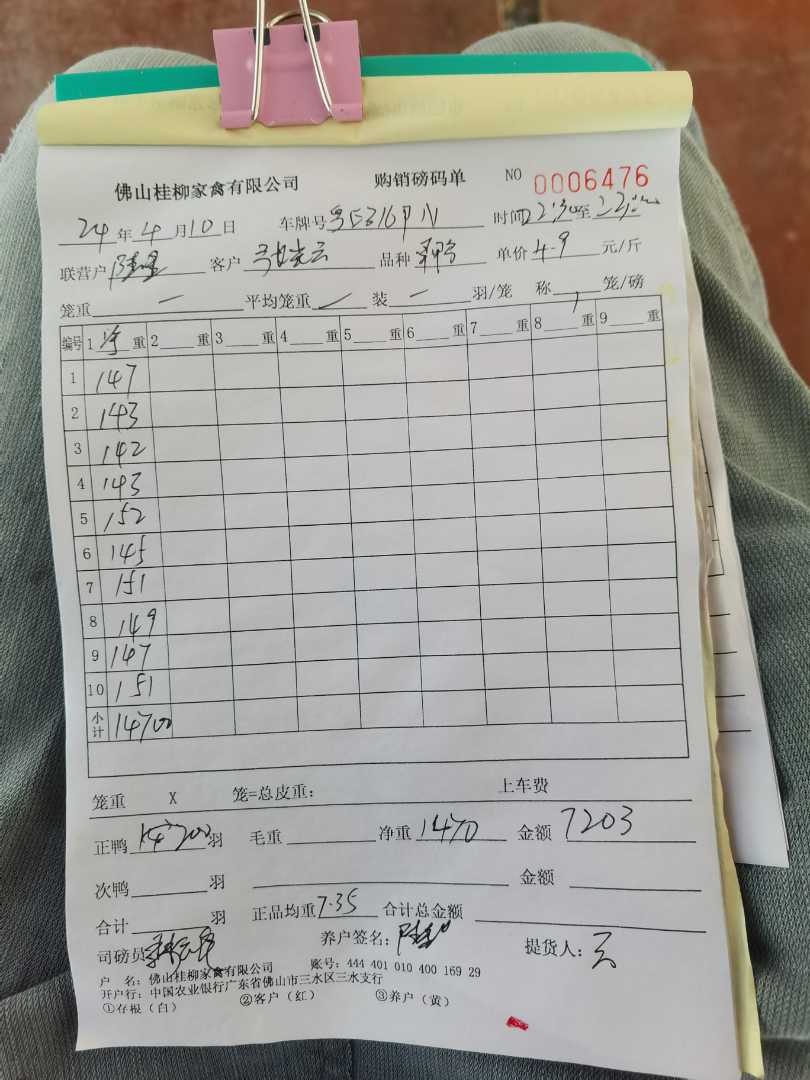 佛山桂柳家禽有限公司 购销磅码单 NO 0006476
24年4月10日 车牌号 时间
联营户 客户 品种 单价4.9元/斤
笼重 一 平均笼重 装 一 羽/笼 称 笼/磅
编号 1净重 2 重 3 重 4 重 5 重 6 重 7 重 8 重 9 重
1 147
2 143
3 142
4 143
5 152
6 145
7 151
8 149
9 147
10 151
小计 14700
笼重 X 笼=总皮重: 上车费
正鸭 羽 毛重 净重1470 金额7203
次鸭 羽 金额
合计 羽 正品均重7.35 合计总金额
司磅员 养户签名: 提货人:云
户 名: 佛山桂柳家禽有限公司 账号: 444 401 010 400 169 29
开户行: 中国农业银行广东省佛山市三水区三水支行
①存根(白) ②客户(红) ③养户(黄)